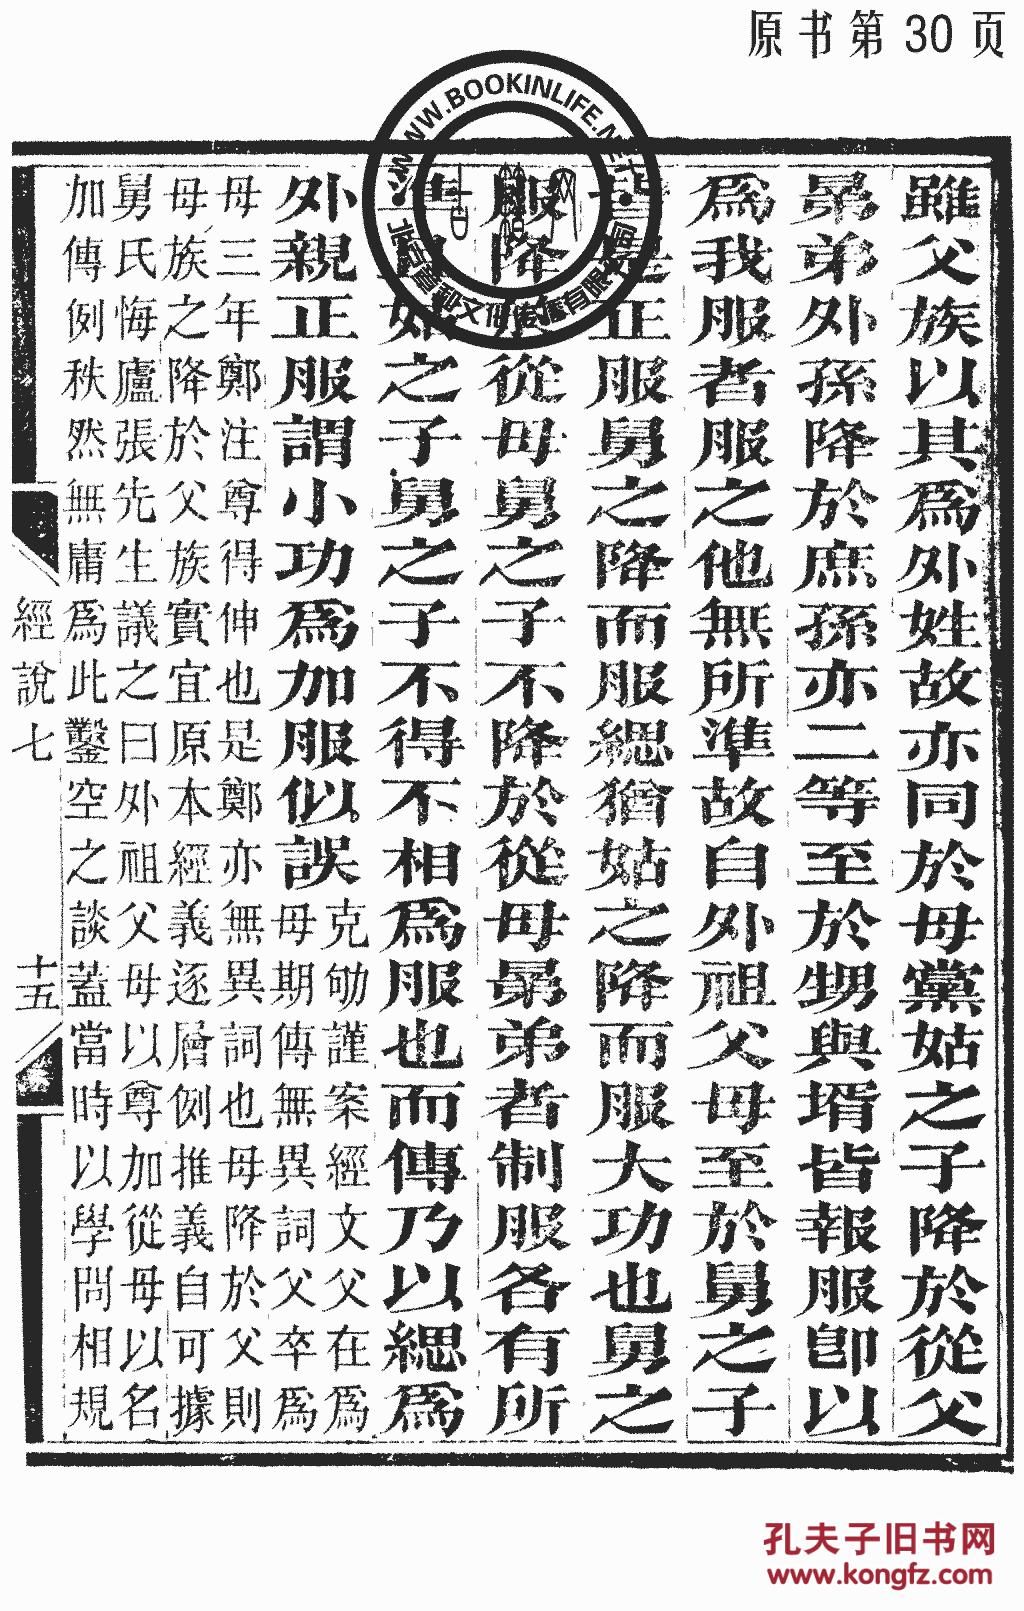 原书第30页
WWW.BOOKINLIFE.NET
雖父族以其爲外姓故亦同於母黨姑之子降於從父
晜弟外孫降於庶孫亦二等至於甥與壻皆報服卽以
爲我服者服之他無所準故自外祖父母至於舅之子
是正服舅之降而服緦猶姑之降而服大功也舅之
服降從母舅之子不降於從母晜弟者制服各有所
之子舅之子不得不相爲服也而傳乃以緦爲
外親正服謂小功爲加服似誤
克劬謹案經文父在爲
母期傳無異詞父卒爲
母三年鄭注尊得伸也是鄭亦無異詞也母降於父則
母族之降於父族實宜原本經義逐層例推義自可據
舅氏悔廬張先生議之曰外祖父母以尊加從母以名
加傳例秩然無庸爲此鑿空之談蓋當時以學問相規
經說七
十五
孔夫子旧书网
www.kongfz.com